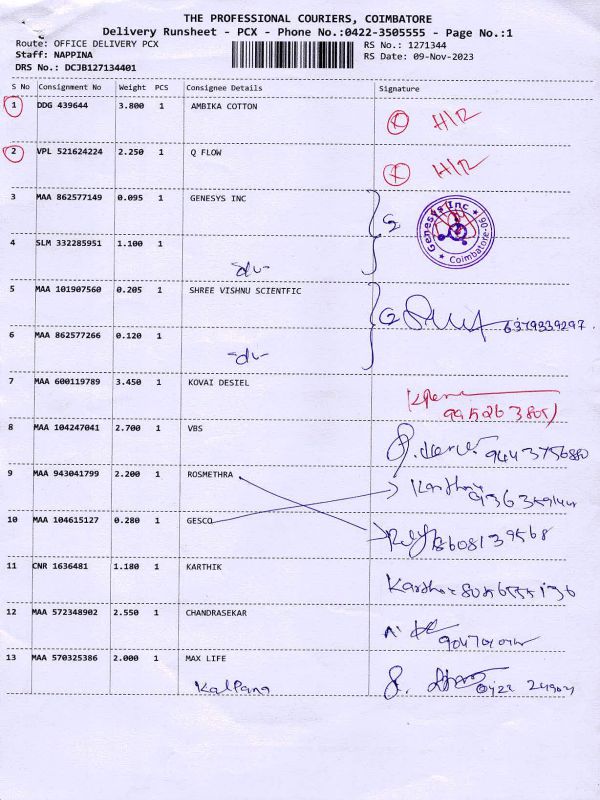 THE PROFESSIONAL COURIERS, COIMBATORE
Delivery Runsheet - PCX - Phone No.:0422-3505555 - Page No.:1
Route: OFFICE DELIVERY PCX
Staff: NAPPINA
DRS No.: DCJB127134401
RS No.: 1271344
RS Date: 09-Nov-2023
S No Consignment No Weight PCS Consignee Details Signature
1 DDG 439644 3.800 1 AMBIKA COTTON
2 VPL 521624224 2.250 1 Q FLOW
3 MAA 862577149 0.095 1 GENESYS INC
Genesys Inc
Coimbatore
4 SLM 332285951 1.100 1
5 MAA 101907560 0.205 1 SHREE VISHNU SCIENTFIC
6379339297
6 MAA 862577266 0.120 1
7 MAA 600119789 3.450 1 KOVAI DESIEL
8 MAA 104247041 2.700 1 VBS
9443756880
9 MAA 943041799 2.200 1 ROSMETHRA
10 MAA 104615127 0.280 1 GESCO
8608139568
11 CNR 1636481 1.180 1 KARTHIK
12 MAA 572348902 2.550 1 CHANDRASEKAR
13 MAA 570325386 2.000 1 MAX LIFE
Kalpana